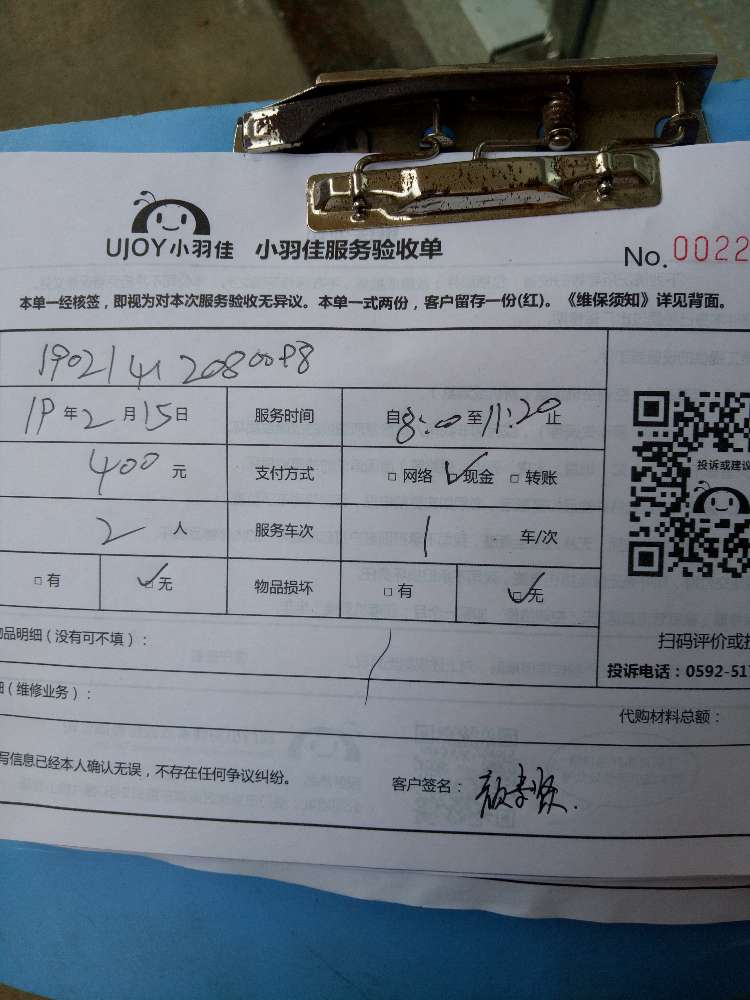 UJOY小羽佳 小羽佳服务验收单 No.0022
本单一经核签，即视为对本次服务验收无异议。本单一式两份，客户留存一份(红)。《维保须知》详见背面。
19年2月15日 服务时间 自8:00至11:20止
400元 支付方式 □网络 ☑现金 □转账
投诉或建议
2人 服务车次 1 车/次
□有 ☑无 物品损坏 □有 ☑无
品明细（没有可不填）：
扫码评价或
投诉电话：0592-517
（维修业务）：
代购材料总额：
写信息已经本人确认无误，不存在任何争议纠纷。
客户签名：